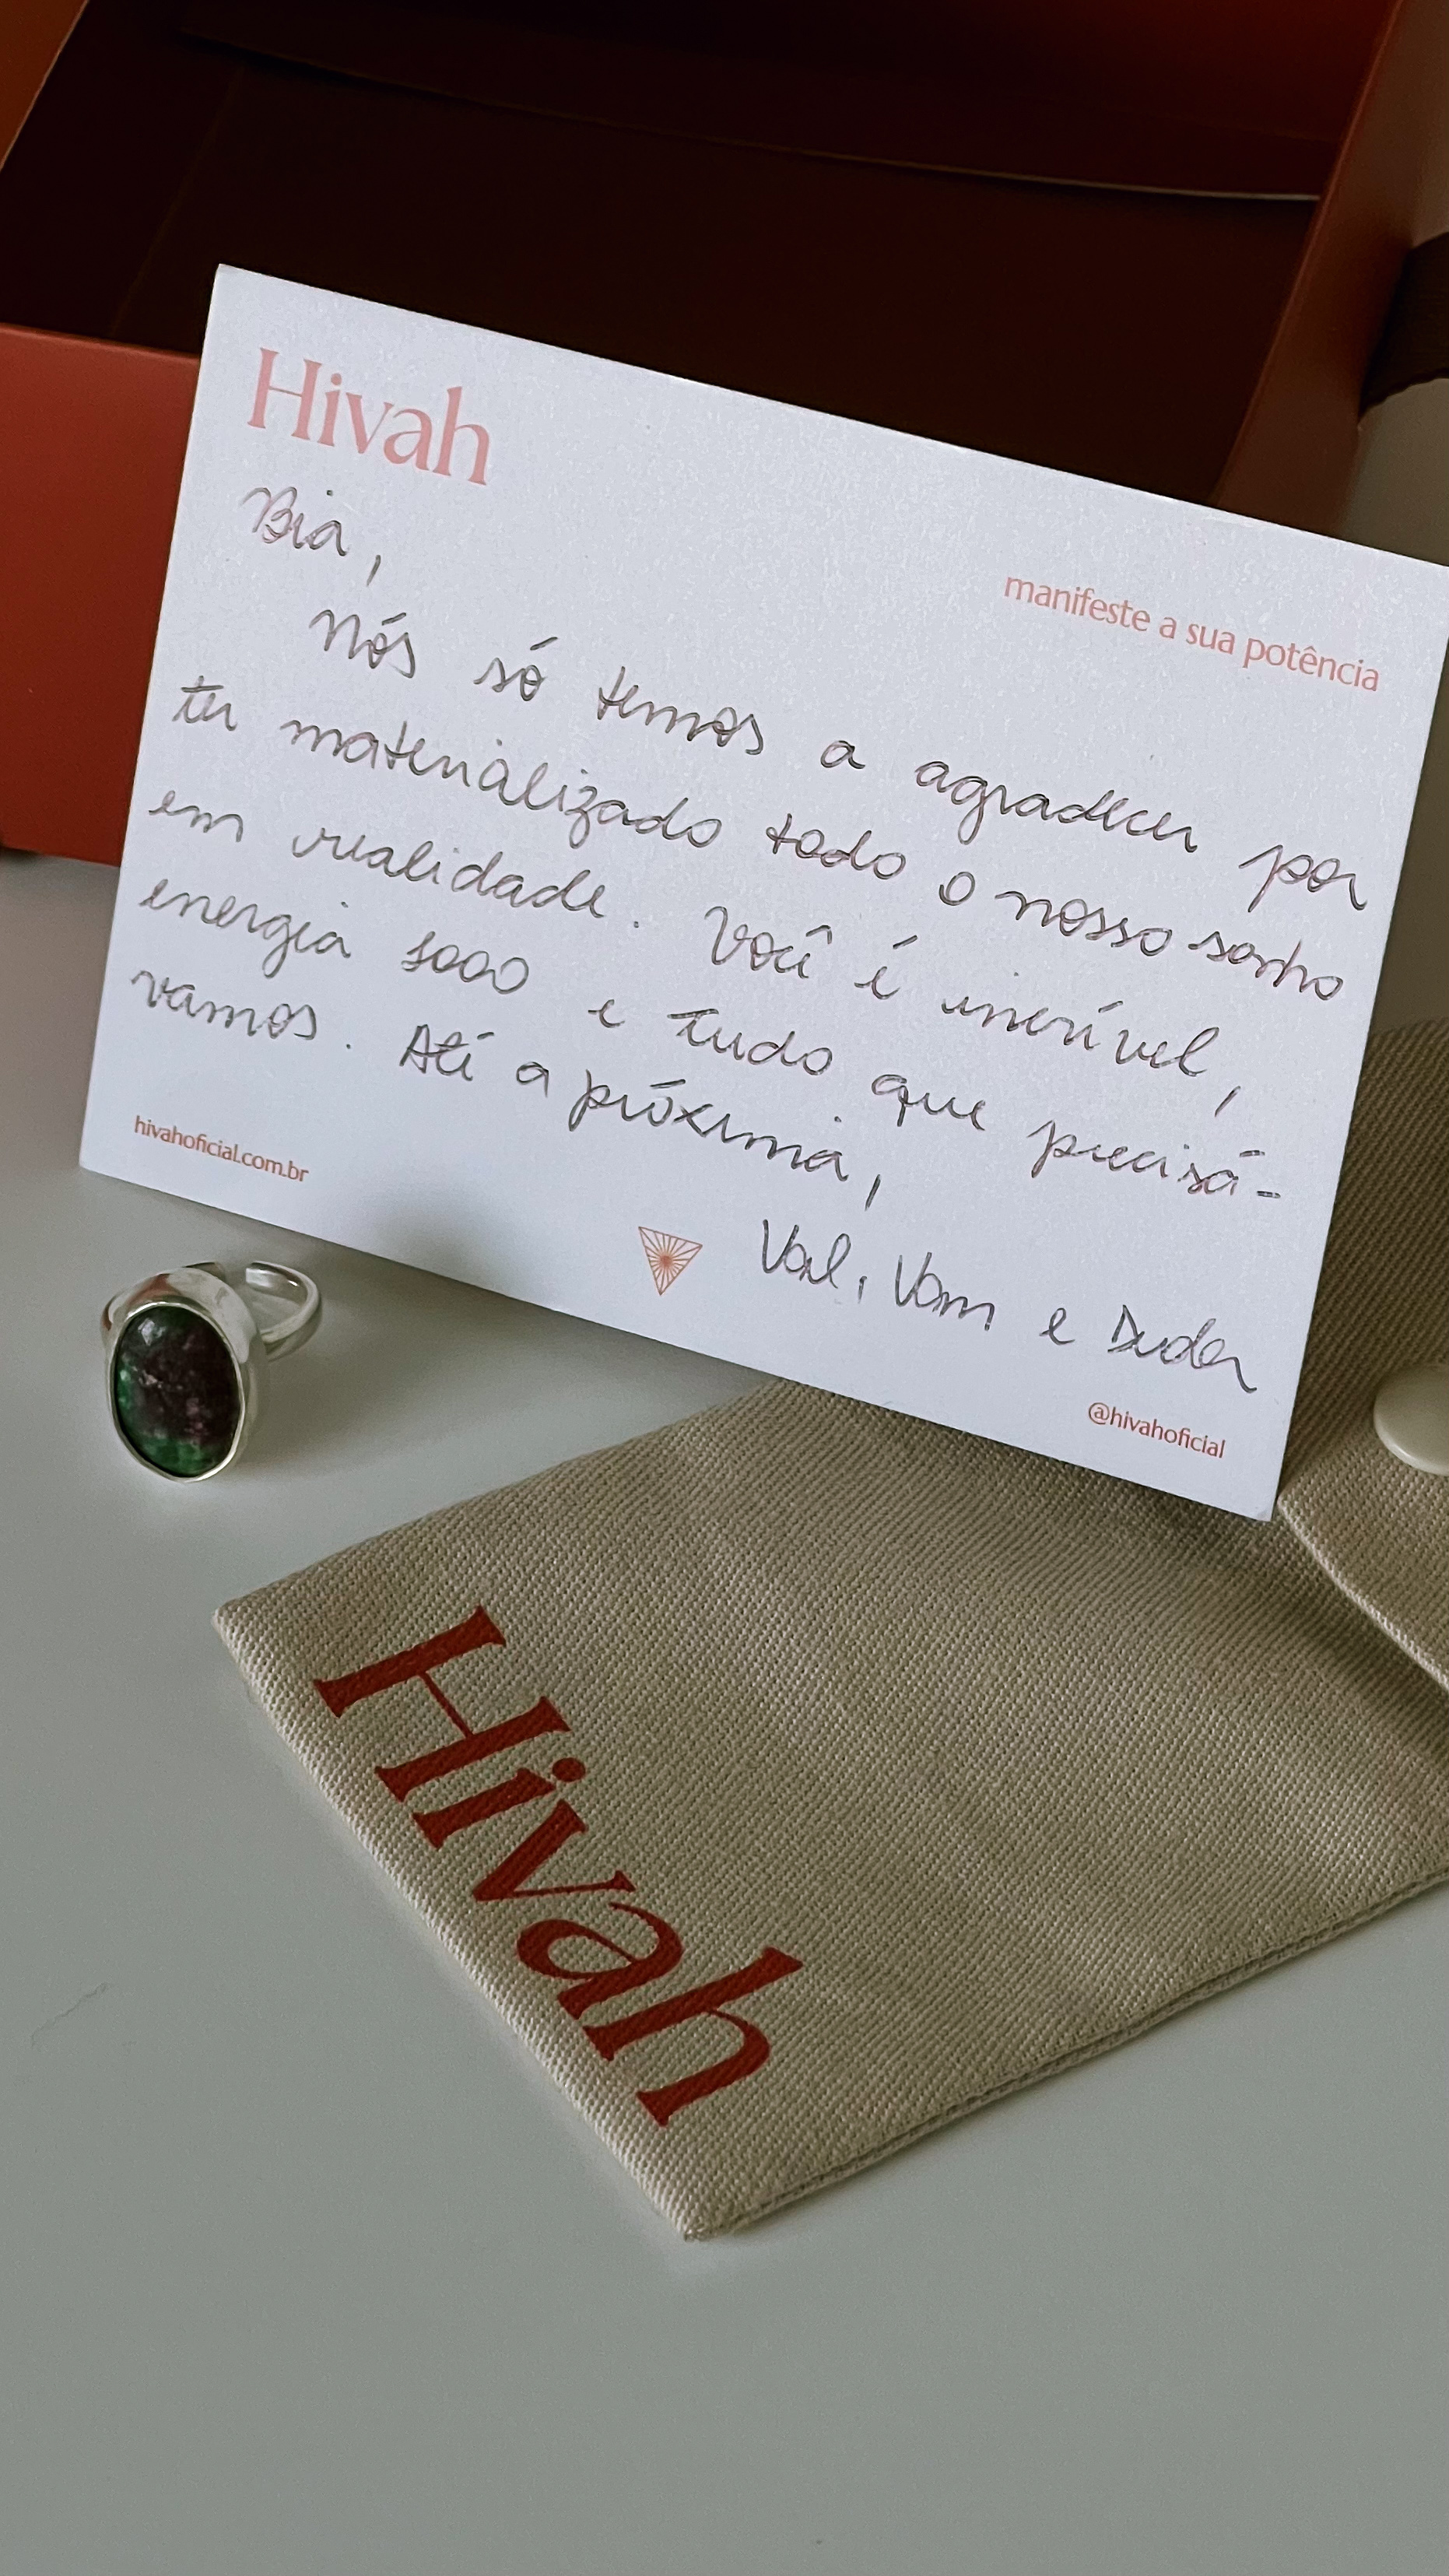 Hivah
manifeste a sua potência
Bia,
Nós só temos a agradecer por
ter materializado todo o nosso sonho
em realidade. Você é incrível,
energia 1000 e tudo que precisá-
vamos. Até a próxima,
Val, Vam e Duda
hivahoficial.com.br
@hivahoficial
Hivah